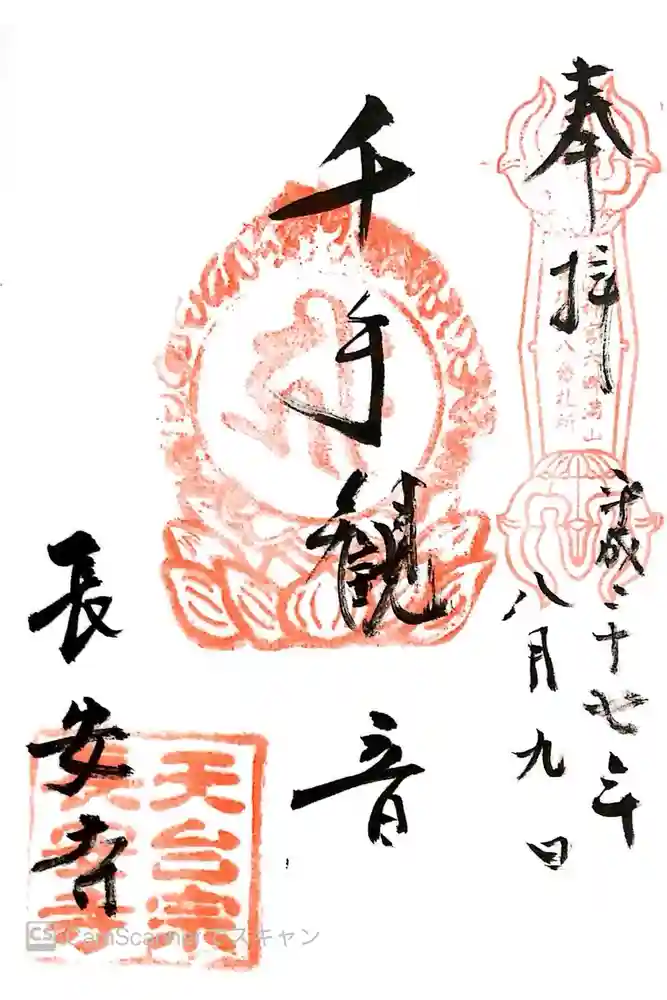 奉拝
平成二十七年
八月九日
千手観音
長安寺
天台宗
長安寺
八番札所
CS CamScannerでスキャン